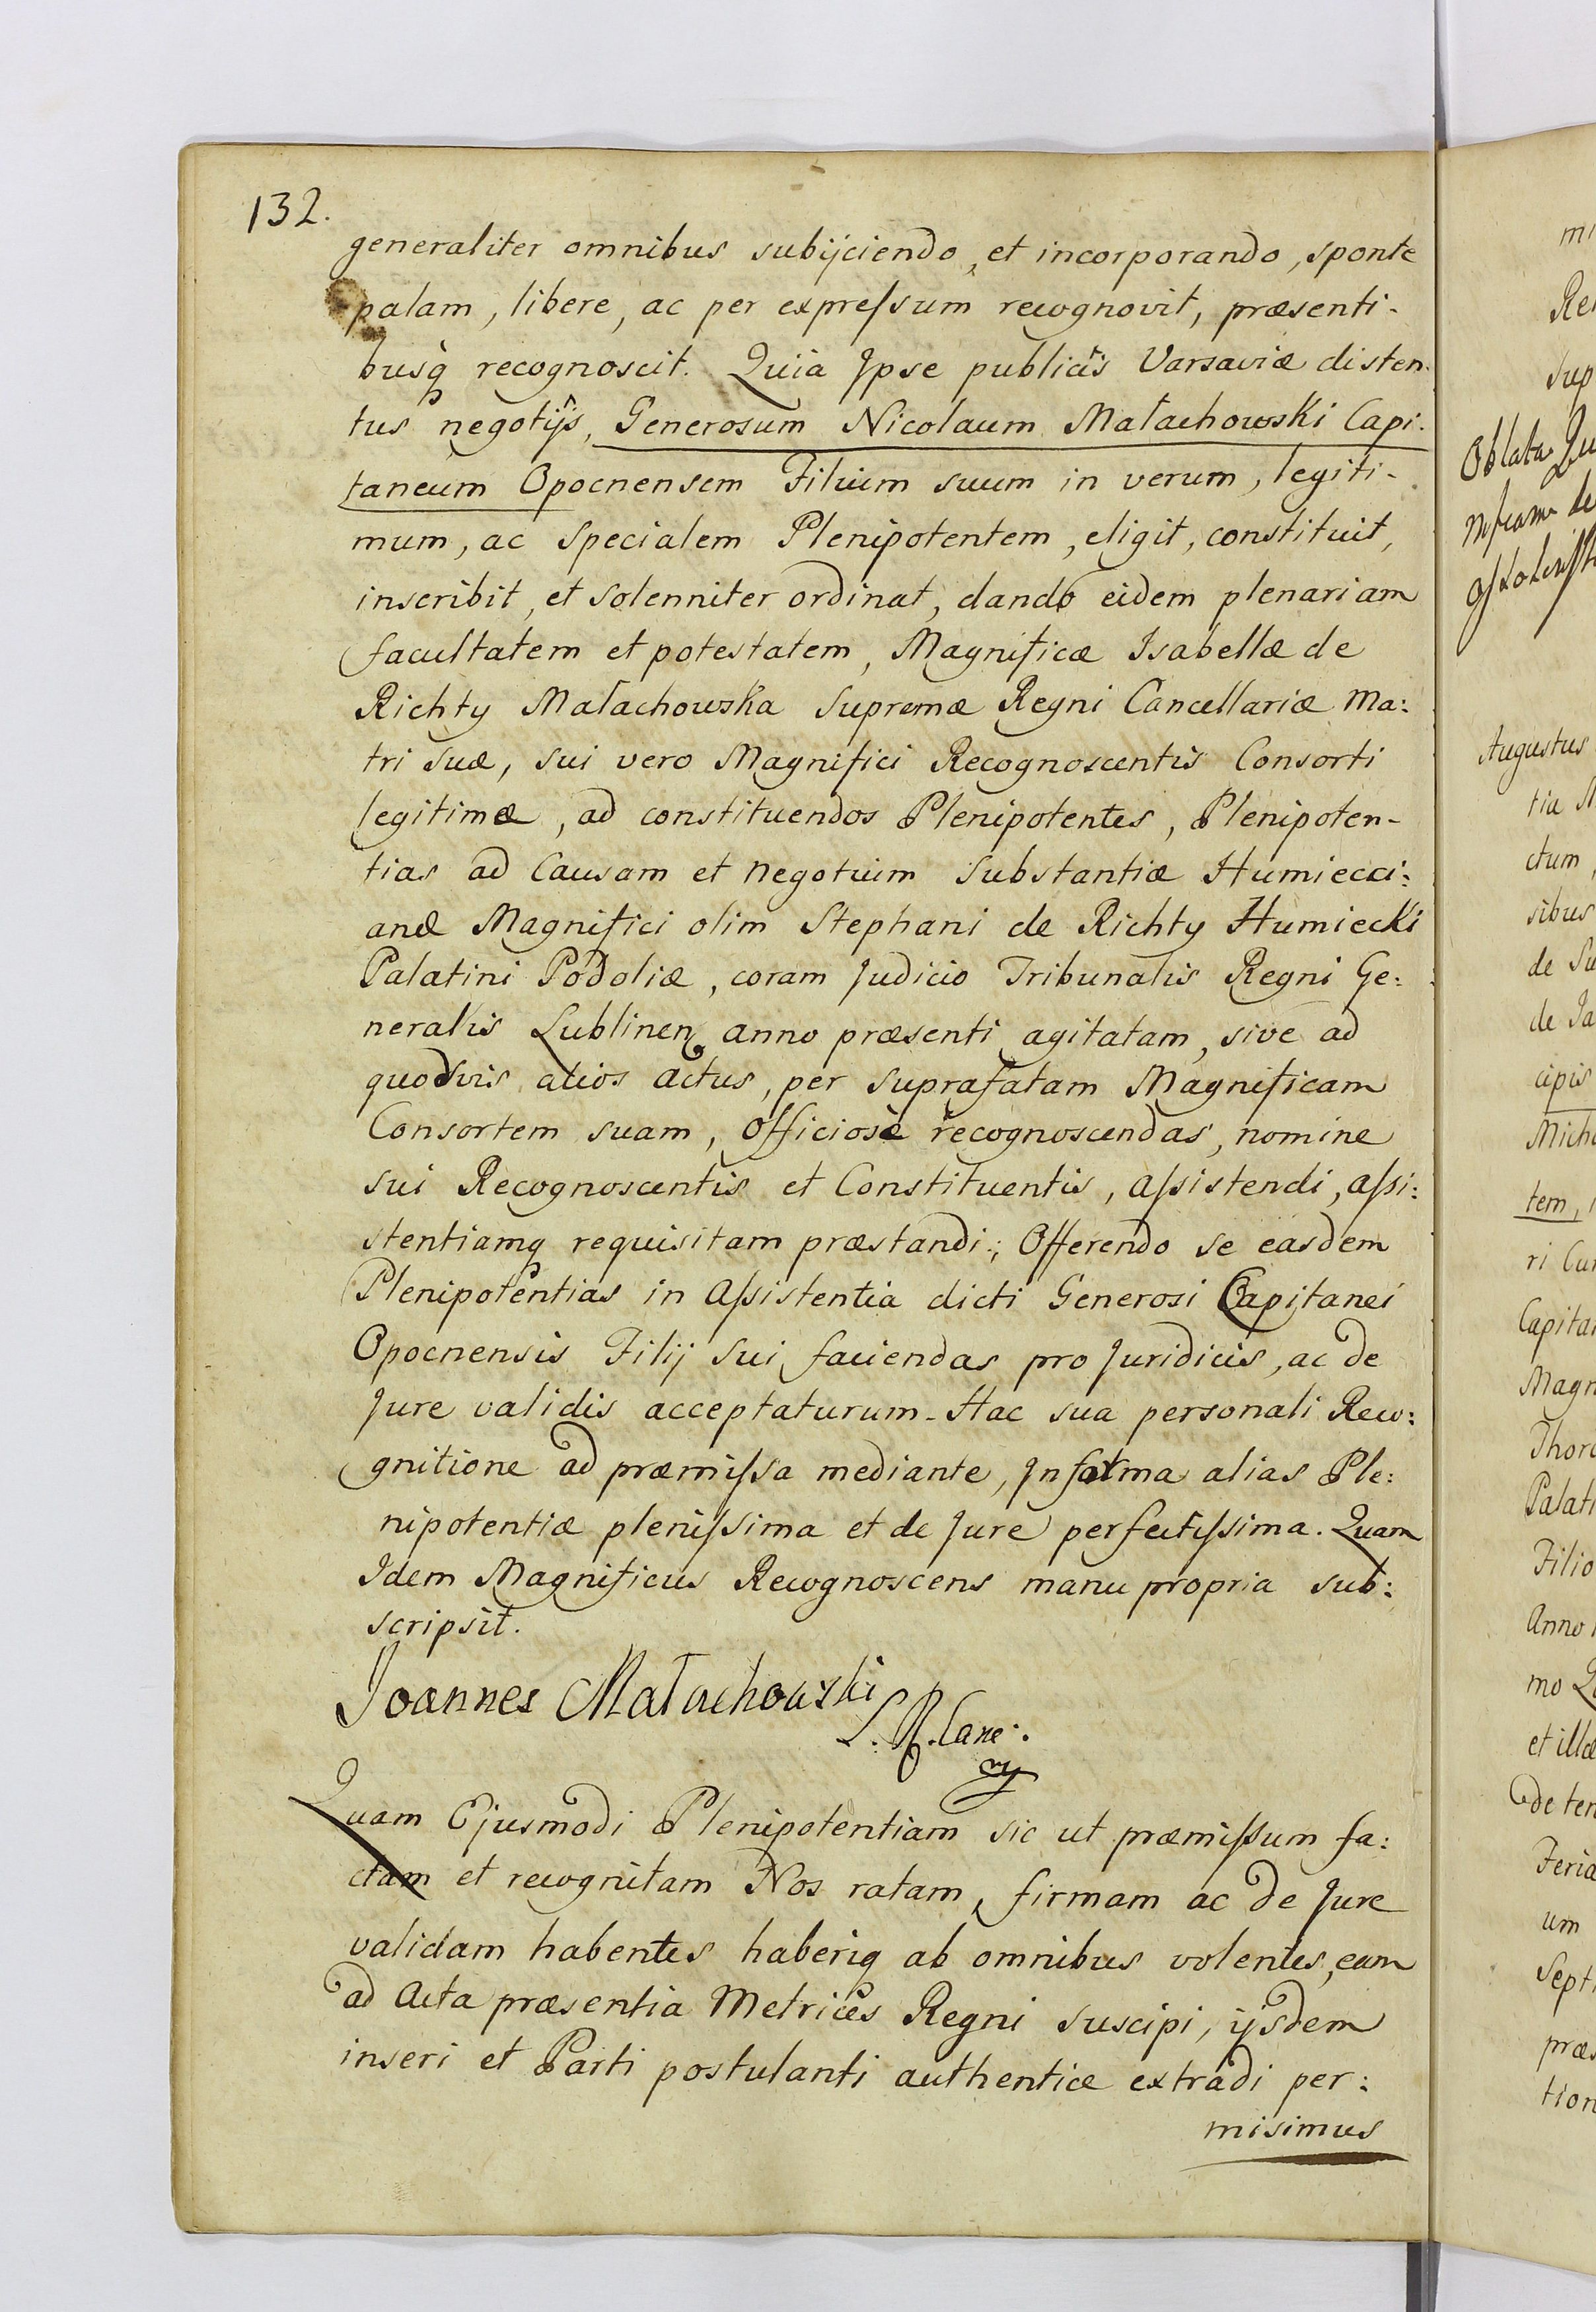 132.
generaliter omnibus subijciendo, et incorporando, sponte
palam, libere, ac per expreſsum recognovit, præsenti-
busq́ recognoscit. Quia Jpse publicis Varsaviæ disten-
tus negotijs, Generosum Nicolaum Małachowski Capi-
taneum Opocnensem Filium suum in verum, legiti-
mum, ac Specialem Plenipotentem, eligit, constituit,
inscribit, et solenniter ordinat, dando eidem plenariam
facultatem et potestatem, Magnificæ Isabellæ de
Richty Małachowska Supremæ Regni Cancellariæ Ma:
tri suæ, sui vero Magnifici Recognoscentis Consorti
legitimæ, ad constituendos Plenipotentes, Plenipoten-
tias ad Causam et Negotium Substantiæ Humiecci:
anæ Magnifici olim Stephani de Richty Humiecki
Palatini Podoliæ, coram Judicio Tribunalis Regni Ge:
neralis Lublinen anno præsenti agitatam, sive ad
quodvis alios actus, per Suprafatam Magnificam
Consortem suam, Officiosè recognoscendas, nomine
sui Recognoscentis et Constituentis, aſsistendi, aſsi:
stentiamq requisitam præstandi; Offerendo se easdem
Plenipotentias in Aſsistentia dicti Generosi Capitanei
Opocnensis Filij sui faciendas pro Juridicis, ac de
Jure validis acceptaturum. Hac sua personali Reco:
gnitione ad præmiſsa mediante, Jn forma alias Ple:
nipotentiæ pleniſsima et de Jure perfectiſsima. Quam
Idem Magnificus Recognoscens manu propria sub:
scripsit.
Joannes Małachowski
S. R. Canc:
mp
Quam Ejusmodi Plenipotentiam sic ut præmiſsum fa:
ctam et recognitam Nos ratam, firmam ac de Jure
validam habentes haberiq ab omnibus volentes, eam
ad Acta præsentia Metrices Regni suscipi, ijsdem
inseri et Parti postulanti authentice extradi per:
misimus
Re
sup
Oblata
Augustus
tia
ctum
sibus
de
de
cipis
tem,
ri
Capita
Magn
Thor
Palat
Filio
Anno
mo
et illæ
de
Feria
um
Sept
præ
tion